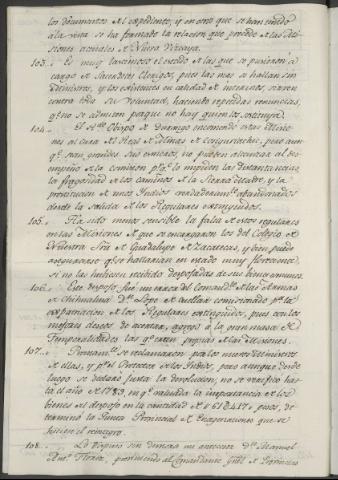 los documentos del expediente, y en otro que se han tenido
a la vista se ha formado la relacion que precede de las Mi-
siones actuales de Nueva Vizcaya.
103.. Es muy lastimoso el estado de las que se pusieron à
cargo de Sacerdotes Clerigos, pues las mas se hallan sin
Ministros, y los existentes en calidad de interinos, sirven
contra toda su voluntad, haciendo repetidas renuncias,
qe no se admiten porque no hay quien los sostituya.
104.. El Rdo Obispo de Durango encomendó estas Misio-
nes al Cura del Real de Minas de
qe son grandes sus esmeros, no pueden alcanzar al des-
empeño de la comision pr qe lo impiden las distancias,
la fragosidad de los caminos de la Sierra Madre, y la
de unos Indios verdaderamte abandonados
desde la salida de los Regulares extinguidos.
105.. Ha sido menos sensible la falta de estos regulares
en las Misiones de que se encargaron los del Colegio de
Nuestra Sra de Guadalupe de Zacatecas, y bien puede
asegurarse qe se hallarian en estado muy floreciente,
si no las hubiesen recibido despojadas de sus bienes comunes.
106.. Este despojo fué un error del Comandte de las Armas
de Chihuahua Dn Lope de Cuellar comisionado pa la
expatriacion de los Regulares extinguidos, pues con los
mejores deseos de acertar, agregó à la gran masa de
Temporalidades las qe eran propias de las Misiones.
107..  se reclamaron por los nuevos Ministros
de ellas, y pr el Protector de los Indios, pero aunque desde
luego se declaró justa la devolucion, no se verificó has-
ta el año de 1783, en qe valuada la importancia de los
bienes del despojo en la cantidad de  pesos, de-
terminó la Junta Provincial de Enagenaciones que se
hiciera el reintegro.
108.. Lo dispuso sin demora mi antecesor Dn Manuel
Anto Florez, previniendo al Comandante gral de Provincias